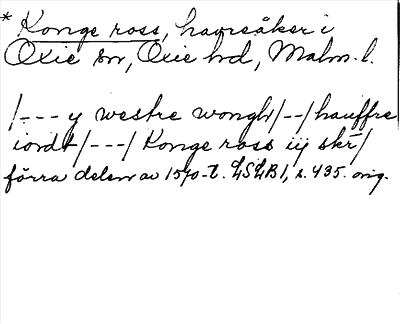 * Konge ross, havreåker i
Oxie sn, Oxie hd, Malm. l.
/--- y westre wongh/--/hauffre
iordt/---/ Konge ross iij skr/
förra delen av 1570-t. LSLB1, s. 435. orig.